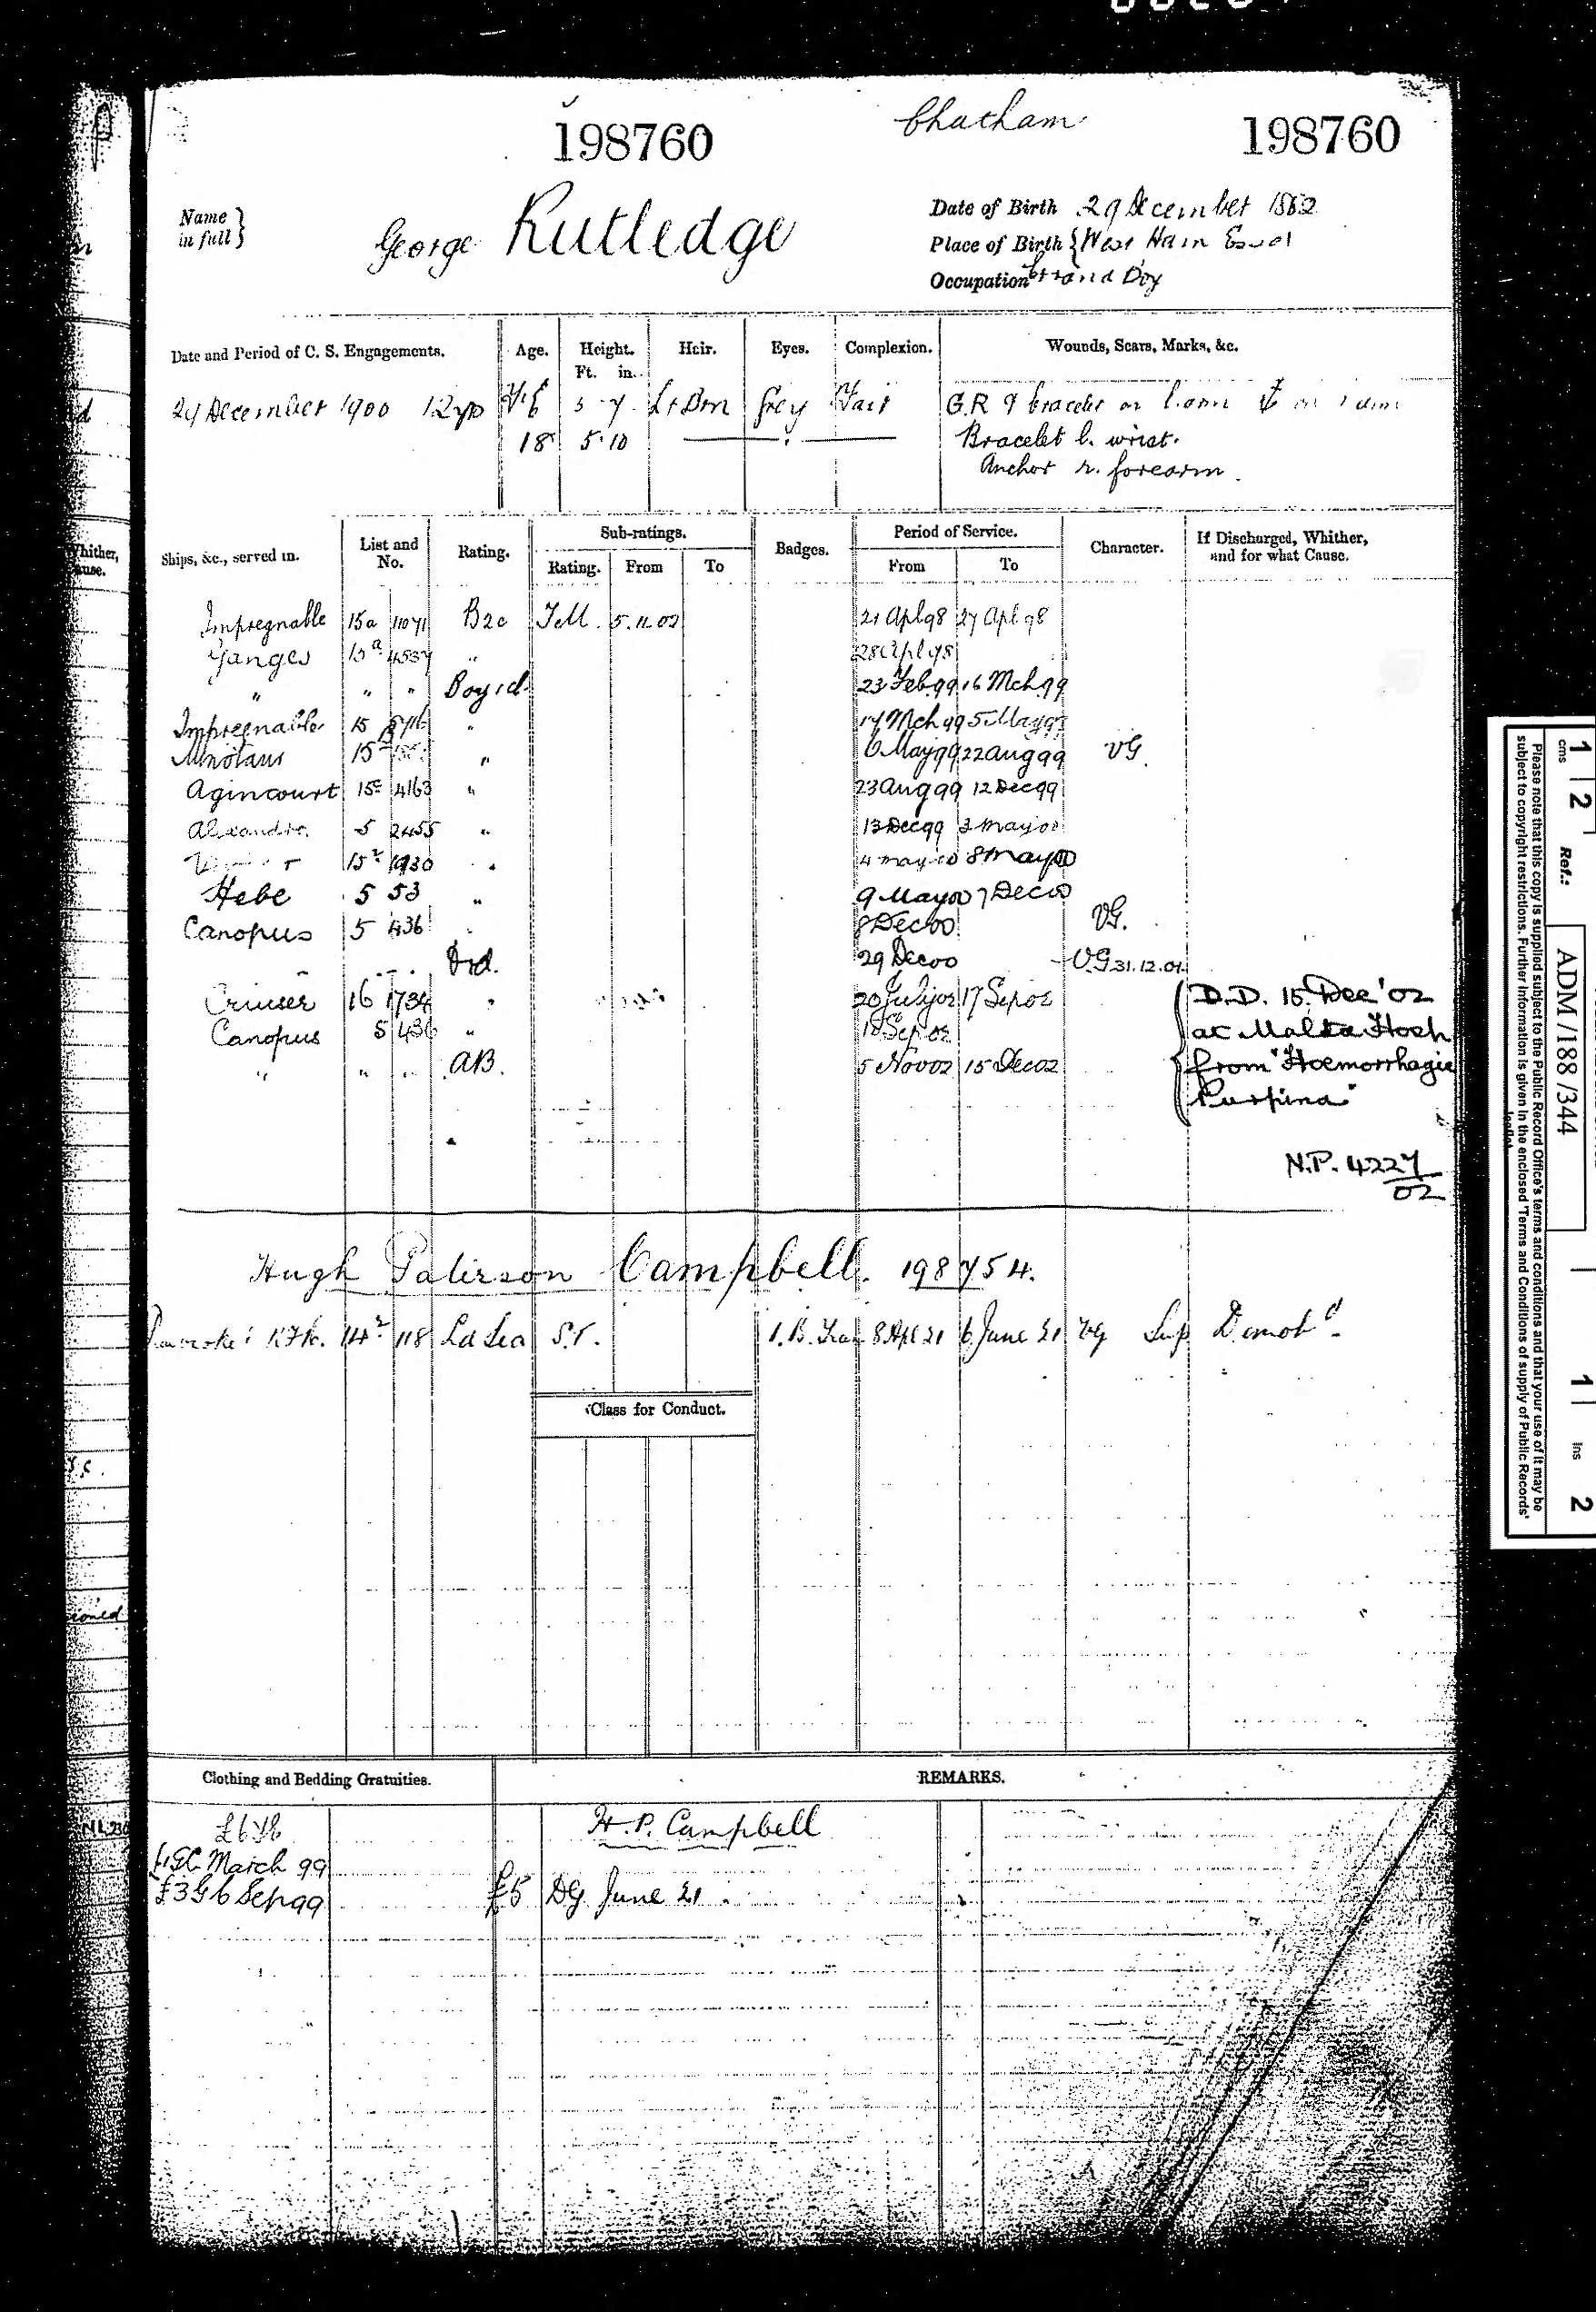 198760
Chatham
198760
Name in full } George Rutledge
Date of Birth 29 December 1882
Place of Birth { West Ham Essex
Occupation Errand Boy
Date and Period of C. S. Engagements. Age. Height. Ft. in. Hair. Eyes. Complexion. Wounds, Scars, Marks, &c.
29 December 1900 12 yrs 5 7 Lt Brn Grey Fair G.R & bracelet on l. arm on r arm
18 5.10 Bracelet l. wrist.
Anchor r. forearm.
Ships, &c., served in. List and No. Rating. Sub-ratings. Rating. From To Badges. Period of Service. From To Character. If Discharged, Whither, and for what Cause.
Impregnable 15a 11071 B2c T.M. 5.11.02 21 Apl 98 27 Apl 98
Ganges 15a 4537 " 28 Apl 98
" " " Boy 1cl. 23 Feb 99 16 Mch 99
Impregnable 15 " 17 Mch 99 5 May 99
Minotaur 15 " 6 May 99 22 Aug 99 VG.
Agincourt 15c 4163 " 23 Aug 99 12 Dec 99
Alexandra 5 2455 " 13 Dec 99 3 May 00
15 1930 " 4 May 00 8 May 00
Hebe 5 53 " 9 May 00 7 Dec 00
Canopus 5 436 " 8 Dec 00 VG.
" Ord. 29 Dec 00 VG 31.12.01
Cruiser 16 1734 " 20 July 02 17 Sep 02 D.D. 15 Dec '02
Canopus 5 436 " 18 Sep 02 at Malta Hosp
" " " AB. 5 Nov 02 15 Dec 02 from "Hoemorrhagic
Purpura"
N.P. 4227/02
Hugh Paterson Campbell. 198754.
14² 118 Ld Sea S.T. 8 Apl 21 6 June 21 VG Sup Demobd.
Class for Conduct.
Clothing and Bedding Gratuities. REMARKS.
H.P. Campbell
March 99
£3 G 6 Sep 99 £5 DG June 21.
Whither,
ause.
ioned
1 2 cms
Ref.: ADM/188/344
1 ins 2
Please note that this copy is supplied subject to the Public Record Office's terms and conditions and that your use of it may be
subject to copyright restrictions. Further information is given in the enclosed 'Terms and Conditions of supply of Public Records'
leaflet